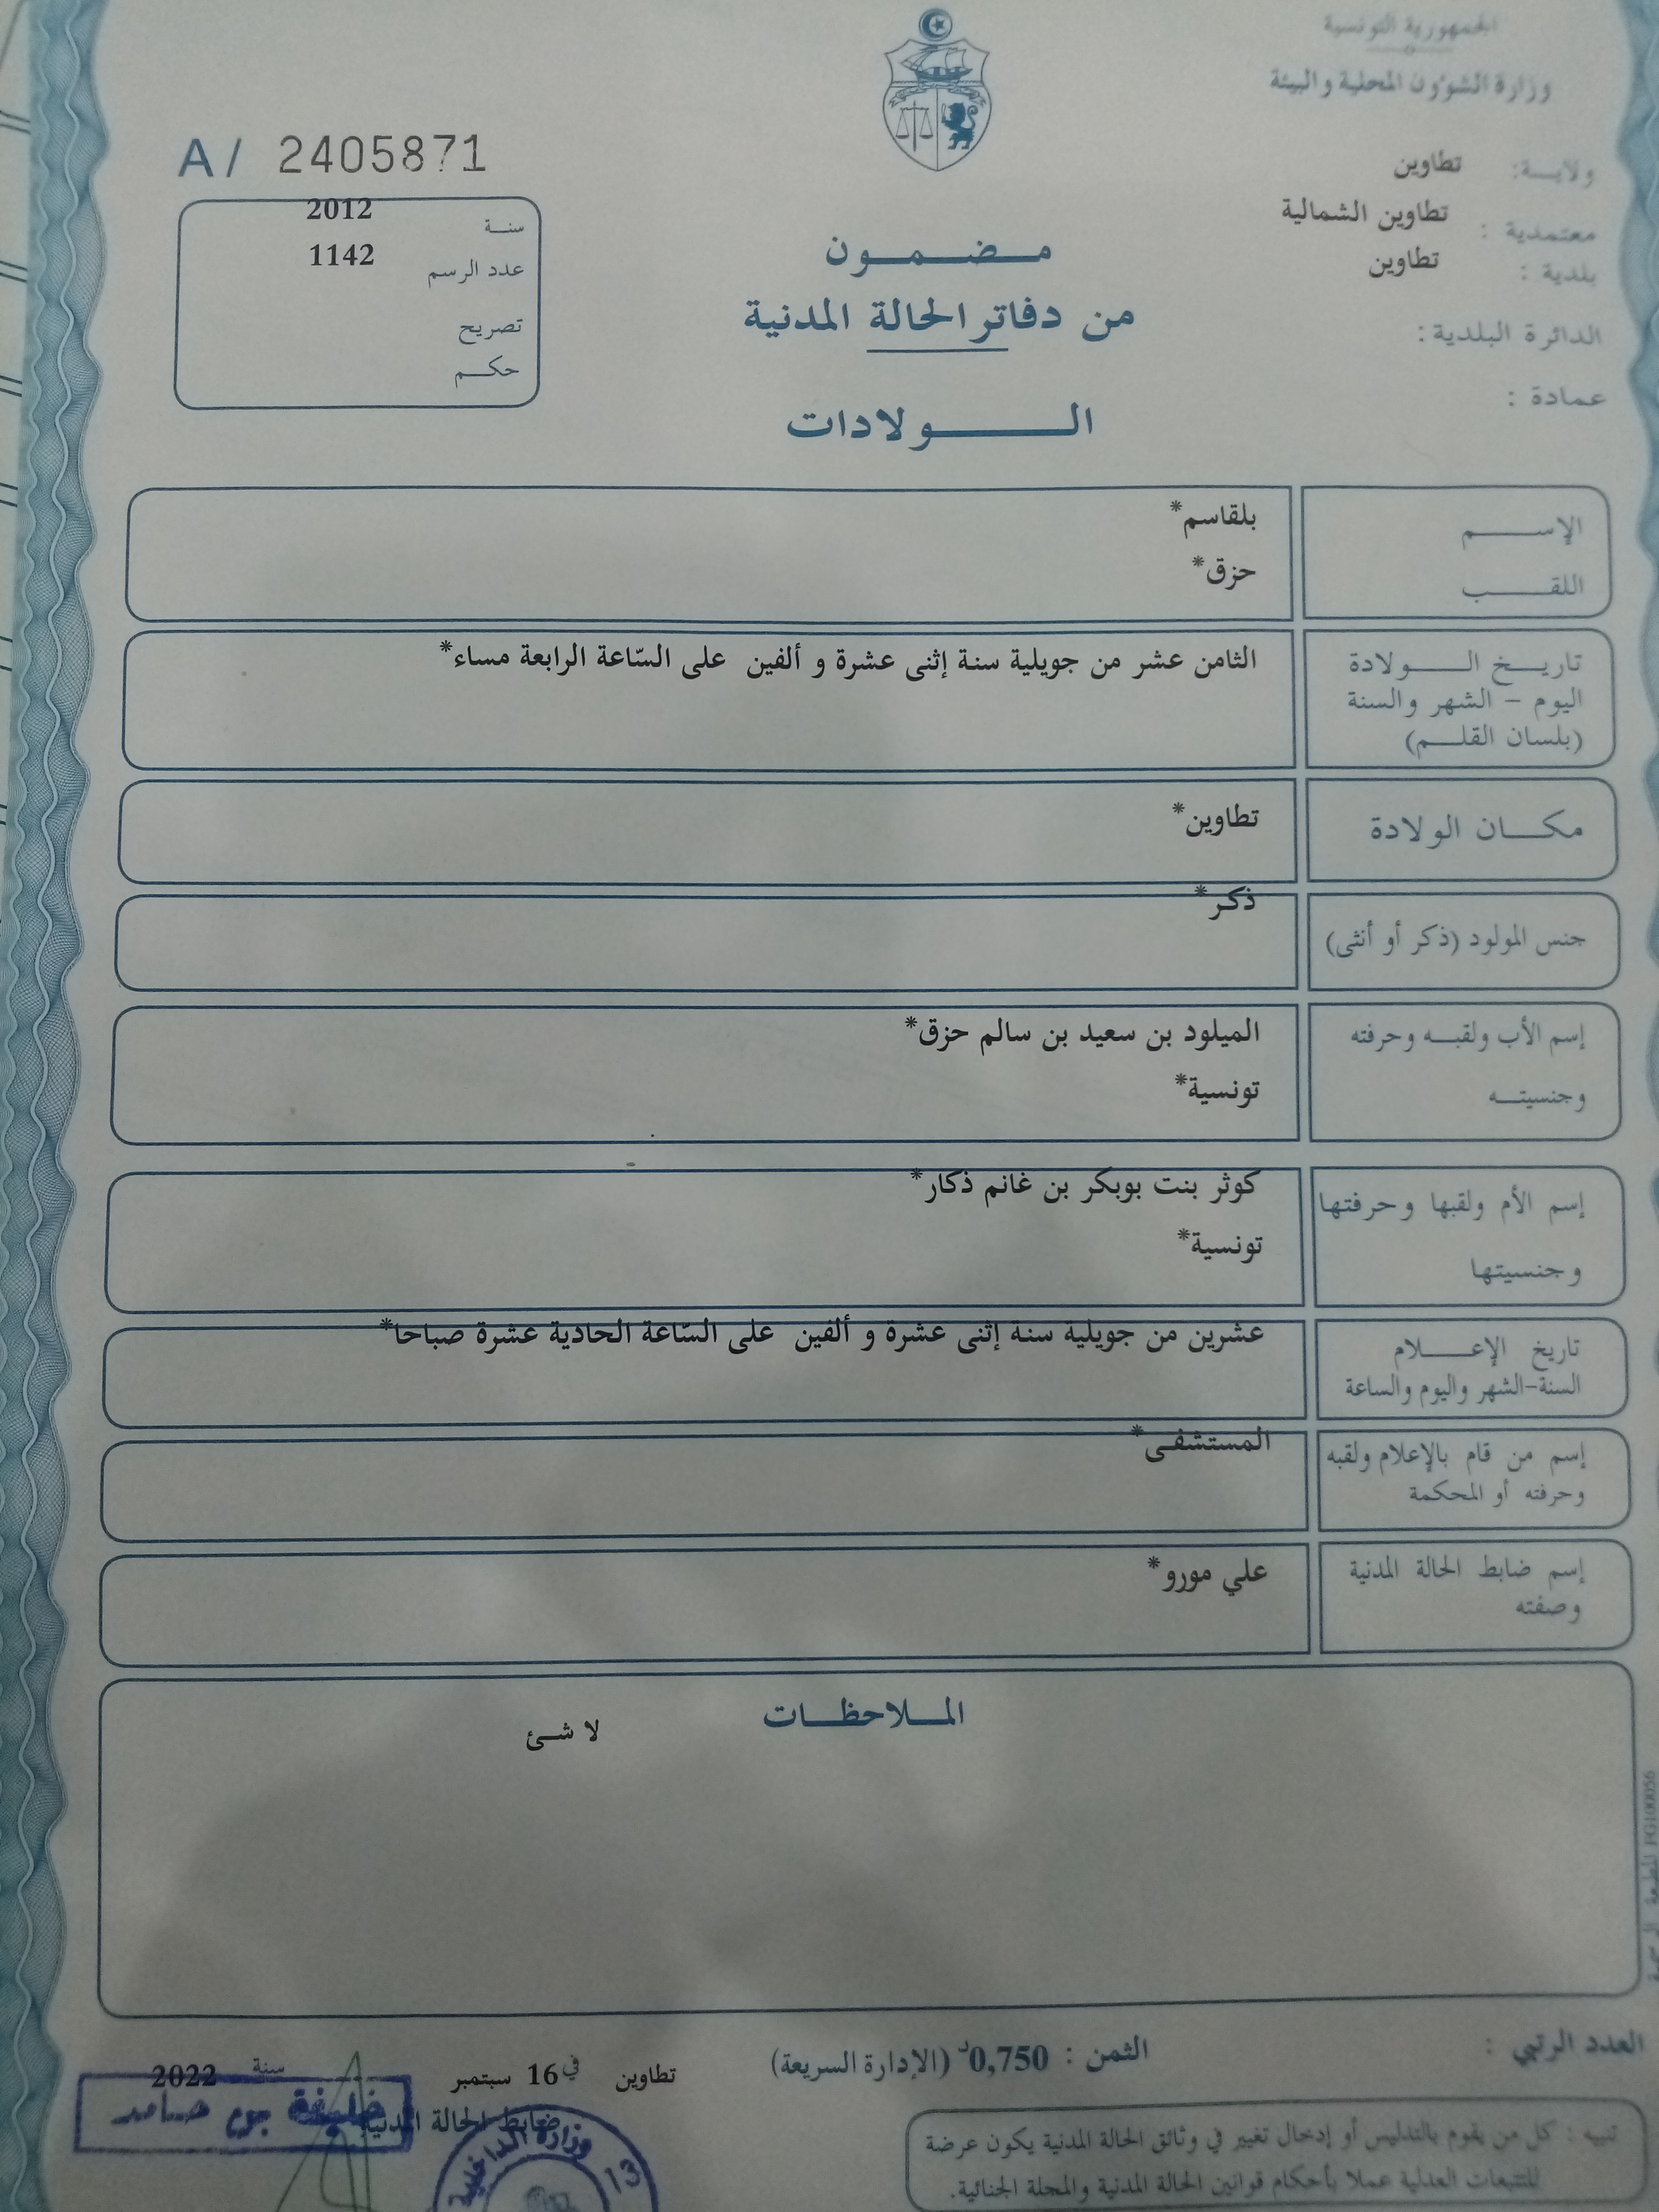 الجمهورية التونسية
وزارة الشؤون المحلية والبيئة
ولايــة: تطاوين
معتمدية : تطاوين الشمالية
بلدية : تطاوين
الدائرة البلدية :
عمادة :
A/ 2405871
سنـة 2012
عدد الرسم 1142
تصريح
حكـم
مـضـمـون
من دفاتر الحالة المدنية
الـولادات
الإســم بلقاسم*
اللقـب حزق*
تاريـخ الـولادة الثامن عشر من جويلية سنة إثنى عشرة و ألفين على السّاعة الرابعة مساء*
اليوم – الشهر والسنة
(بلسان القلـم)
مكـان الولادة تطاوين*
جنس المولود (ذكر أو أنثى) ذكر*
إسم الأب ولقبـه وحرفته الميلود بن سعيد بن سالم حزق*
وجنسيتـه تونسية*
إسم الأم ولقبها وحرفتها كوثر بنت بوبكر بن غانم ذكار*
وجنسيتها تونسية*
تاريخ الإعـلام عشرين من جويلية سنة إثنى عشرة و ألفين على السّاعة الحادية عشرة صباحا*
السنة-الشهر واليوم والساعة
إسم من قام بالإعلام ولقبه المستشفى*
وحرفته أو المحكمة
إسم ضابط الحالة المدنية علي مورو*
وصفته
المـلاحظـات
لا شئ
العدد الرتبي :
الثمن : 0,750د (الإدارة السريعة)
تطاوين في 16 سبتمبر سنة 2022
ضابط الحالة المدنية
وزارة الداخلية
تنبيه : كل من يقوم بالتدليس أو إدخال تغيير في وثائق الحالة المدنية يكون عرضة
للتتبعات العدلية عملا بأحكام قوانين الحالة المدنية والمجلة الجنائية.